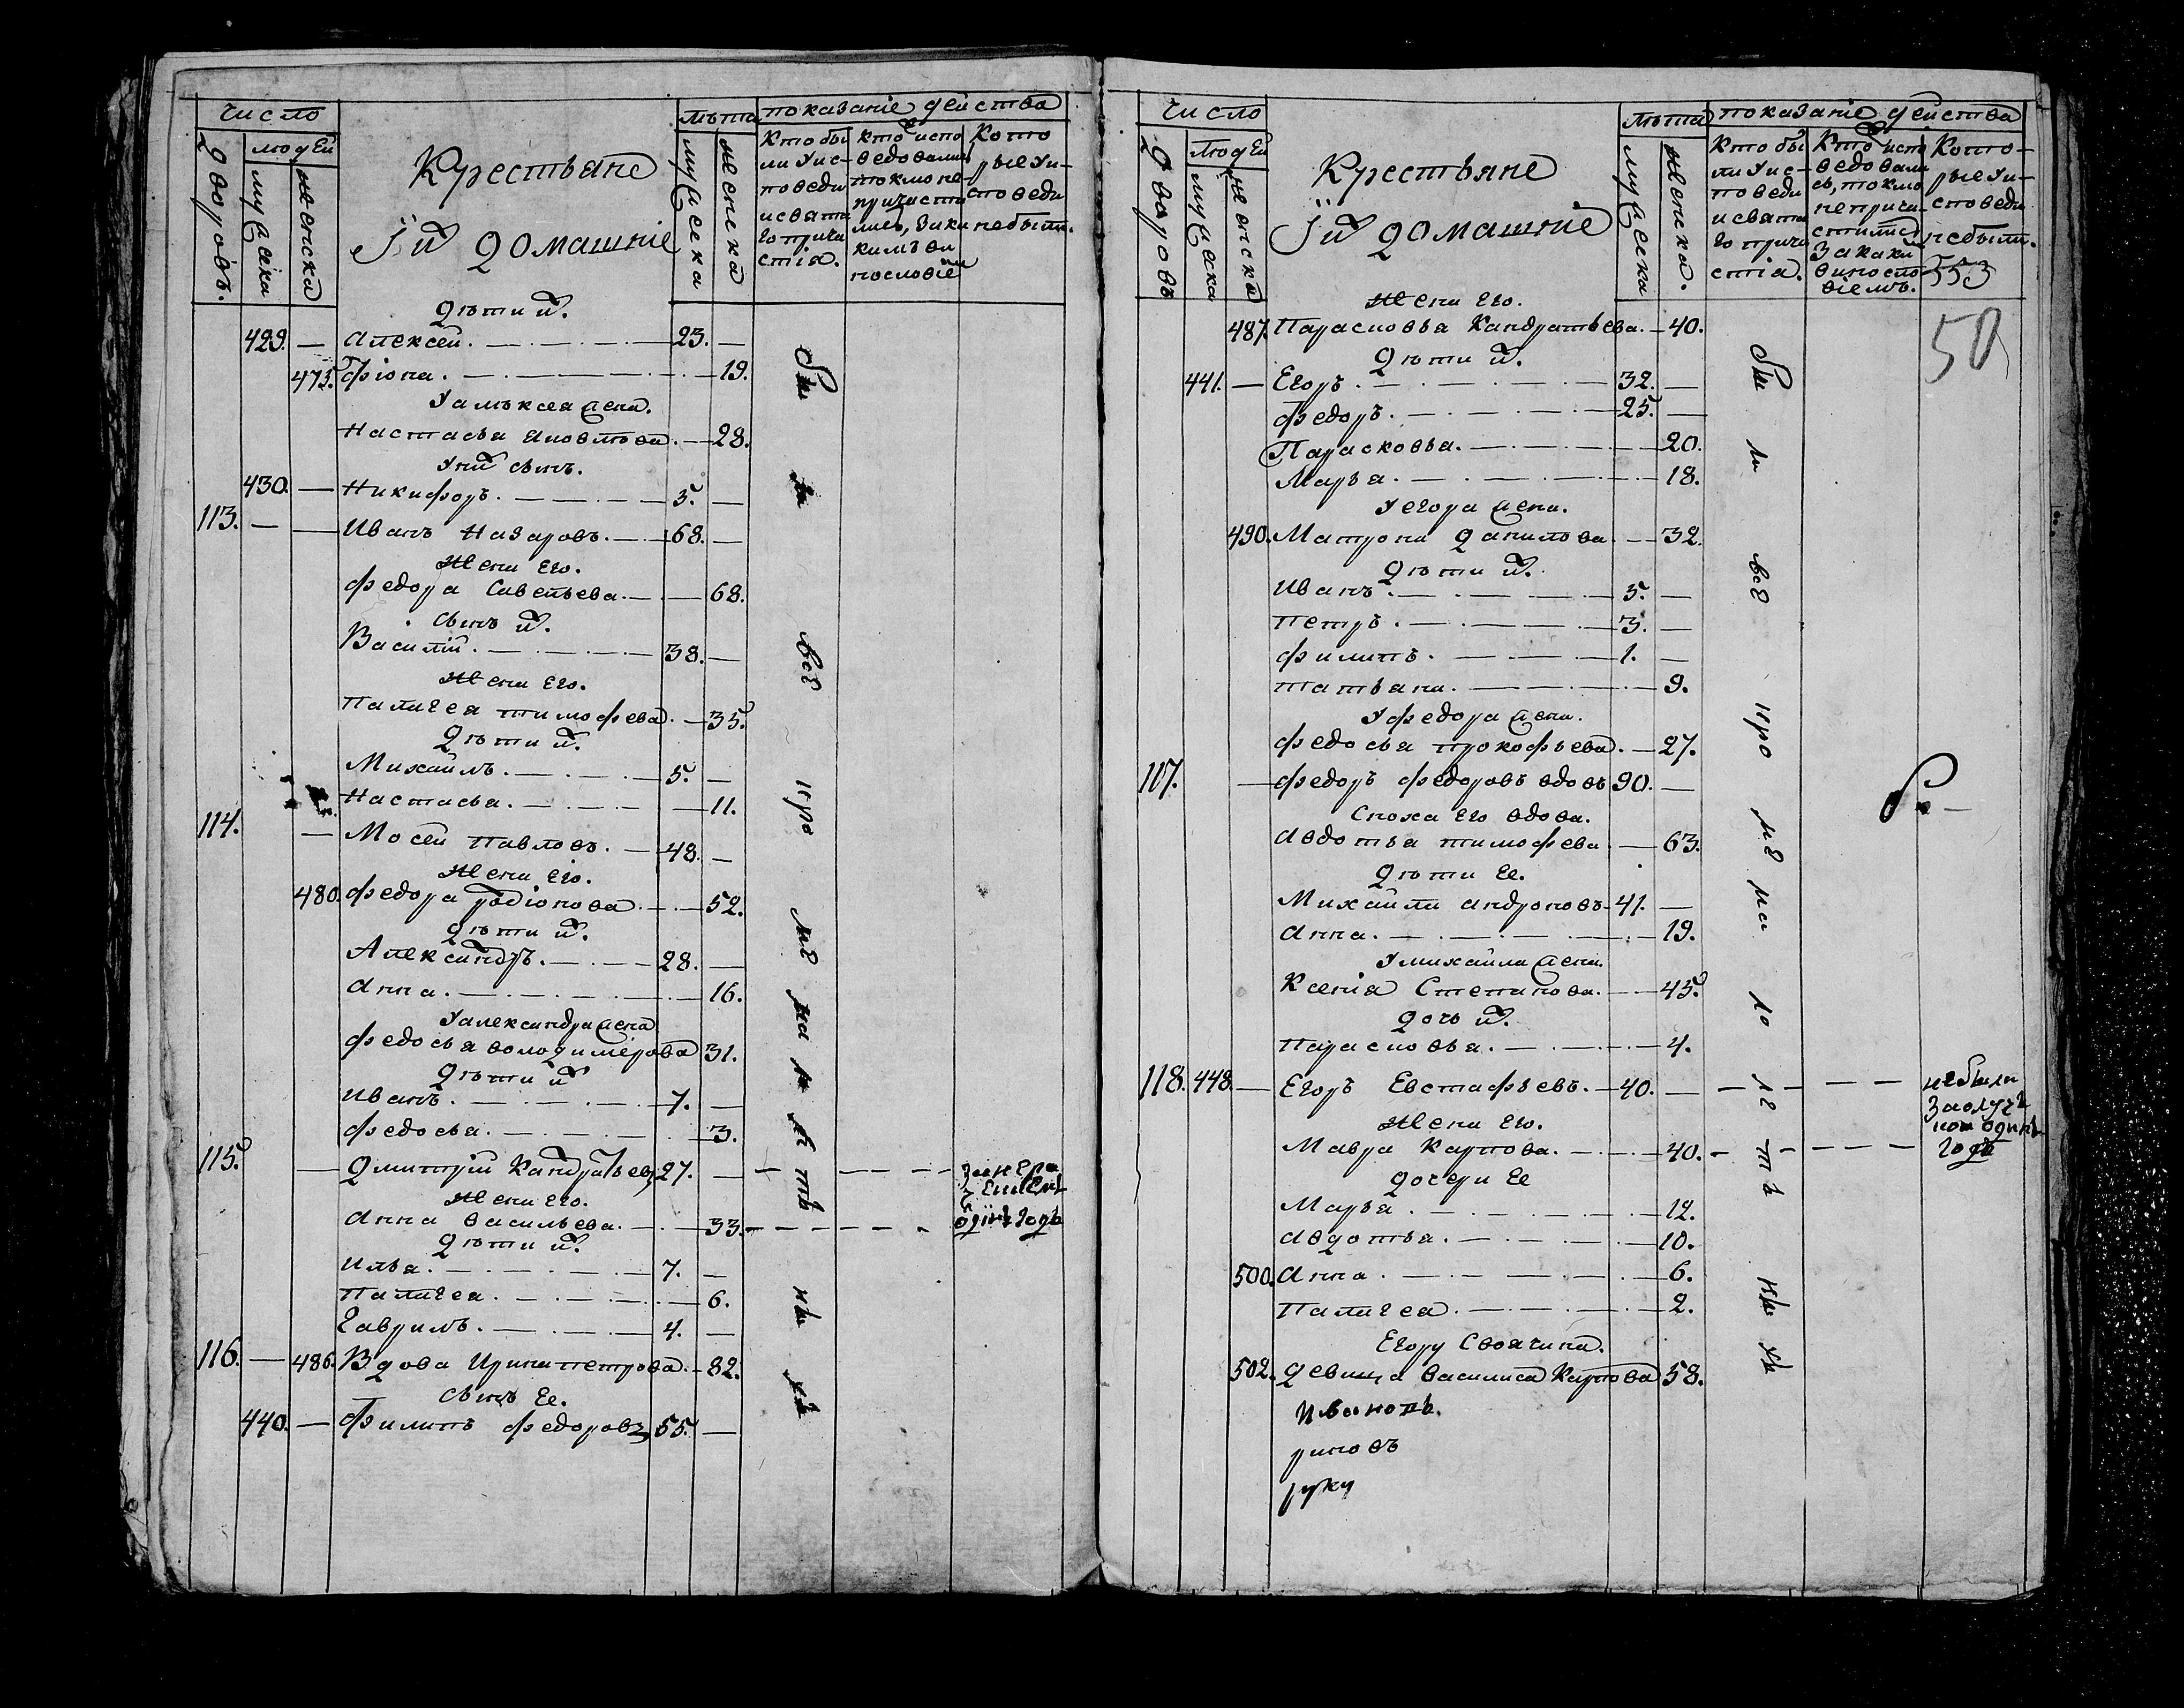 число
Дворовъ.
людей
мужеска
женска
Крестьяне
Їихъ домашніе
лѣта
мужеска
женска
показаніе действа
Кто бы
ли уис-
поведи
исвята
го прича
стія.
кто испо
ведовались
токмо не
причасти
лись, заки
кимъ ви
нословіем
Кото
рые уи-
споведи
небыли.
Дѣти ихъ.
429. — Алексей. — 23. —
475. Фіона. — 19.
Уалѣксея жена.
Настасья — 28.
Унихъ сынъ.
430. — Никифоръ. — 5. —
113. — — Иванъ Назаровъ. — 68. —
Жена Его.
Федора Савельева. — 68.
Сынъ ихъ.
Василій. — 38. —
Жена Его.
Палагея тимофева. — 35.
Дѣти ихъ.
Михаилъ. — 5. —
Настасья. — 11.
114. — Мосей Павловъ. — 48. —
Жена Его.
480. Федора родіонова. — 52.
Дѣти ихъ.
Александръ. — 28. —
Анна. — 16.
Уалександра жена
Федосья володимерова 31.
Дѣти ихъ
Иванъ. — 7. —
Федосья. — 3.
115. — Дмитрій Кандратьевъ 27. —
Жена Его.
Анна Васильева. — 33.
одинъ годъ
Дѣти ихъ.
Илья. — 7. —
Палагея. — 6.
Гаврилъ. — 4. —
116. — 486. Вдова Ирина петрова. — 82.
Сынъ Ее.
440. — Филипъ федоровъ 55. —
всѣ
число
Дворовъ
Людей
мужеска
женска
Крестьяне
Їихъ домашніе
Лѣта
мужеска
женска.
показаніе действа
Кто бы
ли уис-
поведи
исвята
го прича
стія.
Кто испо
ведовали
сь, токмо
неприча-
стились
Закаки
винносло
віемъ.
Кото-
рые уи-
споведи
небыли.
553
50
Жена Его.
487. Парасковья Кандратьева. — 40.
Дѣти ихъ.
441. — Егоръ. — 32. —
Федоръ. — 25. —
Парасковья. — 20.
Марья. — 18.
Уегора жена.
490. Матрона Данилова — 32.
Дѣти ихъ.
Иванъ. — 5. —
петръ. — 3. —
филипъ. — 1. —
татьяна. — 9.
Уфедора жена.
Федосья прокофьева. — 27.
117. — Федоръ Федоровъ вдовъ 90. —
Сноха Его вдова.
Авдотья тимофева. — 63.
Дѣти Ее.
Михаила андроновъ — 41. —
Анна. — 19.
Умихаила жена.
Ксенія Степанова. — 45.
Дочь ихъ.
Парасковья. — 4.
118. 448. — Егоръ Евстафьевъ. — 40. —
небыли
заотлуч
кою одинъ
годъ
Жена Его.
Мавра Карпова. — 40.
Дочери Ее
Марья. — 12.
Авдотья. — 10.
500. Анна. — 6.
Палагея. — 2.
Егору Своячина.
502. Девица Василиса Карпова 58.
всѣ
Ивановъ.
риновъ
руку